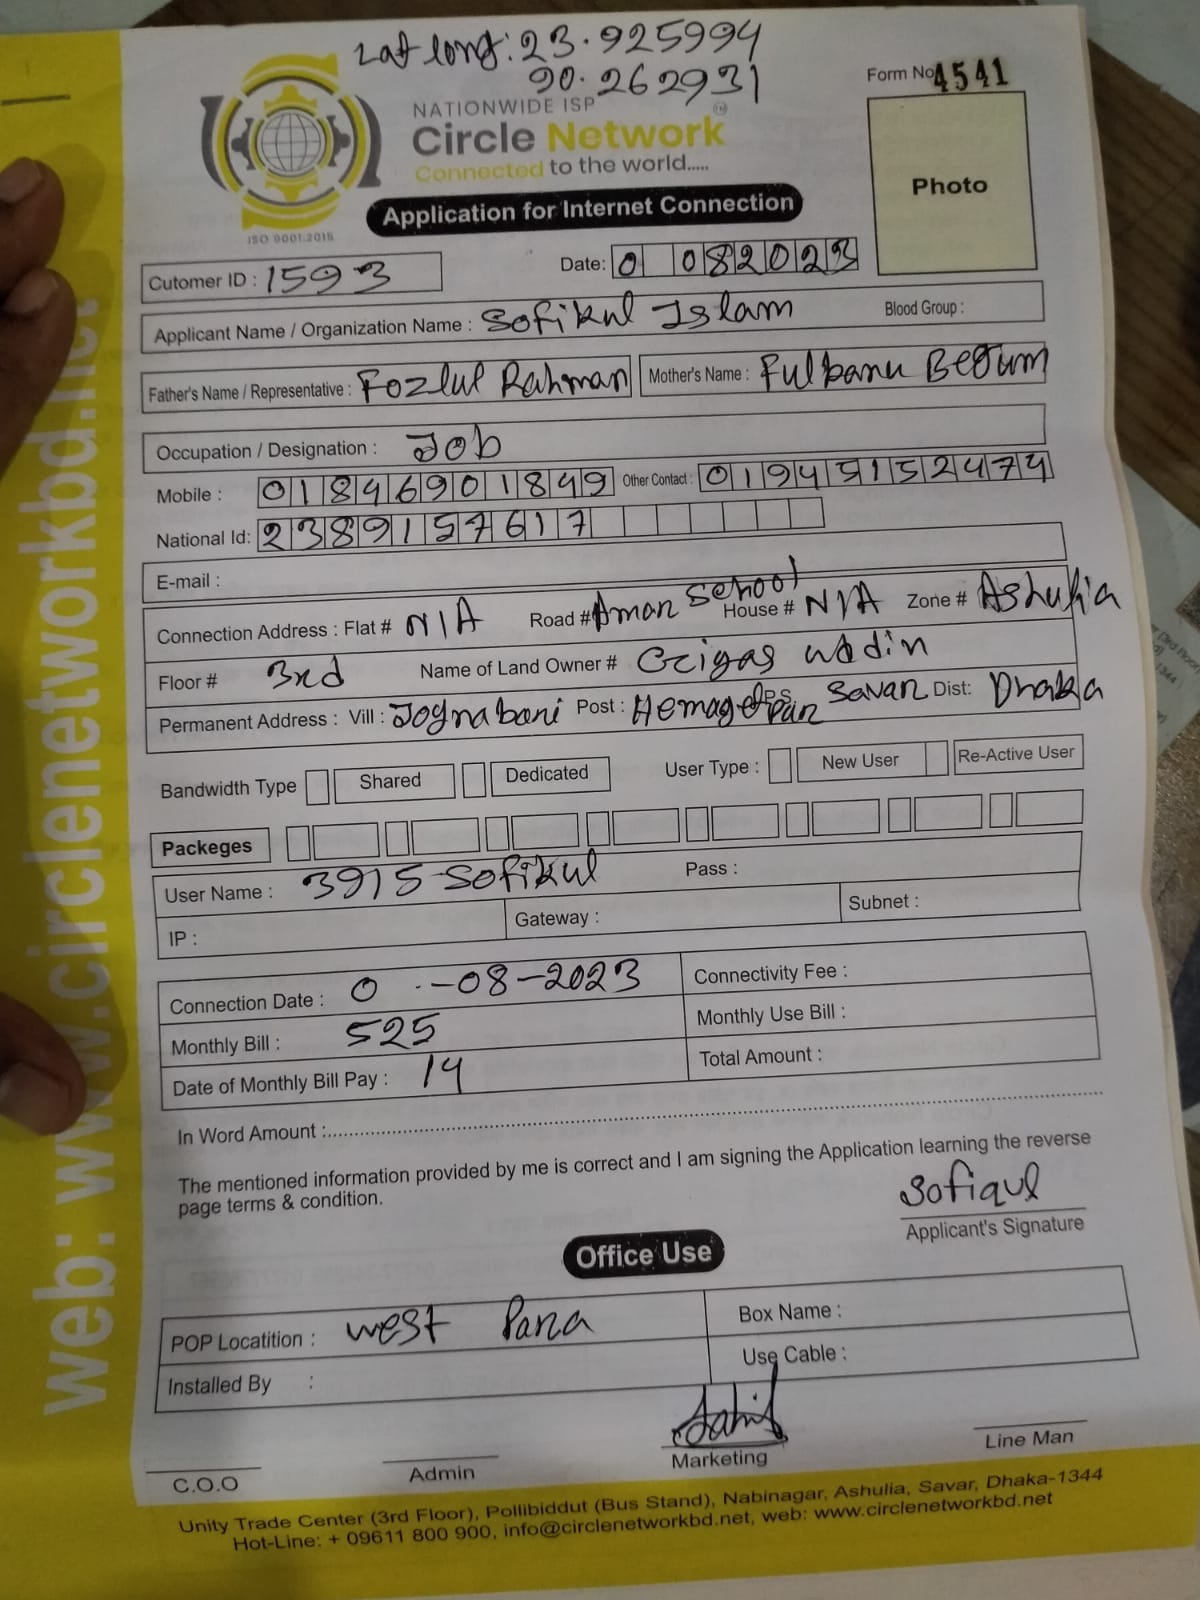 Lat long: 23.925994
90.262931
Form No 4541
NATIONWIDE ISP
Circle Network
TM
Connected to the world.....
Photo
Application for Internet Connection
ISO 9001:2015
Cutomer ID : 1593
Date: 0 082023
Applicant Name / Organization Name : Sofikul Islam Blood Group :
Father's Name / Representative : Fozlul Rahman Mother's Name : Fulbanu Begum
Occupation / Designation : Job
Mobile : 01846901849 Other Contact : 01945152474
National Id: 2389157617
E-mail :
Connection Address : Flat # N/A Road # Aman School House # N/A Zone # Ashulia
Floor # 3rd Name of Land Owner #
Permanent Address : Vill : Post : P.S Savar Dist: Dhaka
Bandwidth Type Shared Dedicated User Type : New User Re-Active User
Packeges
User Name : 3915-Sofikul Pass :
IP : Gateway : Subnet :
Connection Date : 0 -08-2023 Connectivity Fee :
Monthly Bill : 525 Monthly Use Bill :
Date of Monthly Bill Pay : 14 Total Amount :
In Word Amount :
The mentioned information provided by me is correct and I am signing the Application learning the reverse
page terms & condition.
Sofiqul
Applicant's Signature
Office Use
POP Locatition : West Para Box Name :
Installed By : Use Cable :
C.O.O Admin Marketing Line Man
Unity Trade Center (3rd Floor), Pollibiddut (Bus Stand), Nabinagar, Ashulia, Savar, Dhaka-1344
Hot-Line: + 09611 800 900, info@circlenetworkbd.net, web: www.circlenetworkbd.net
web: www.circlenetworkbd.net